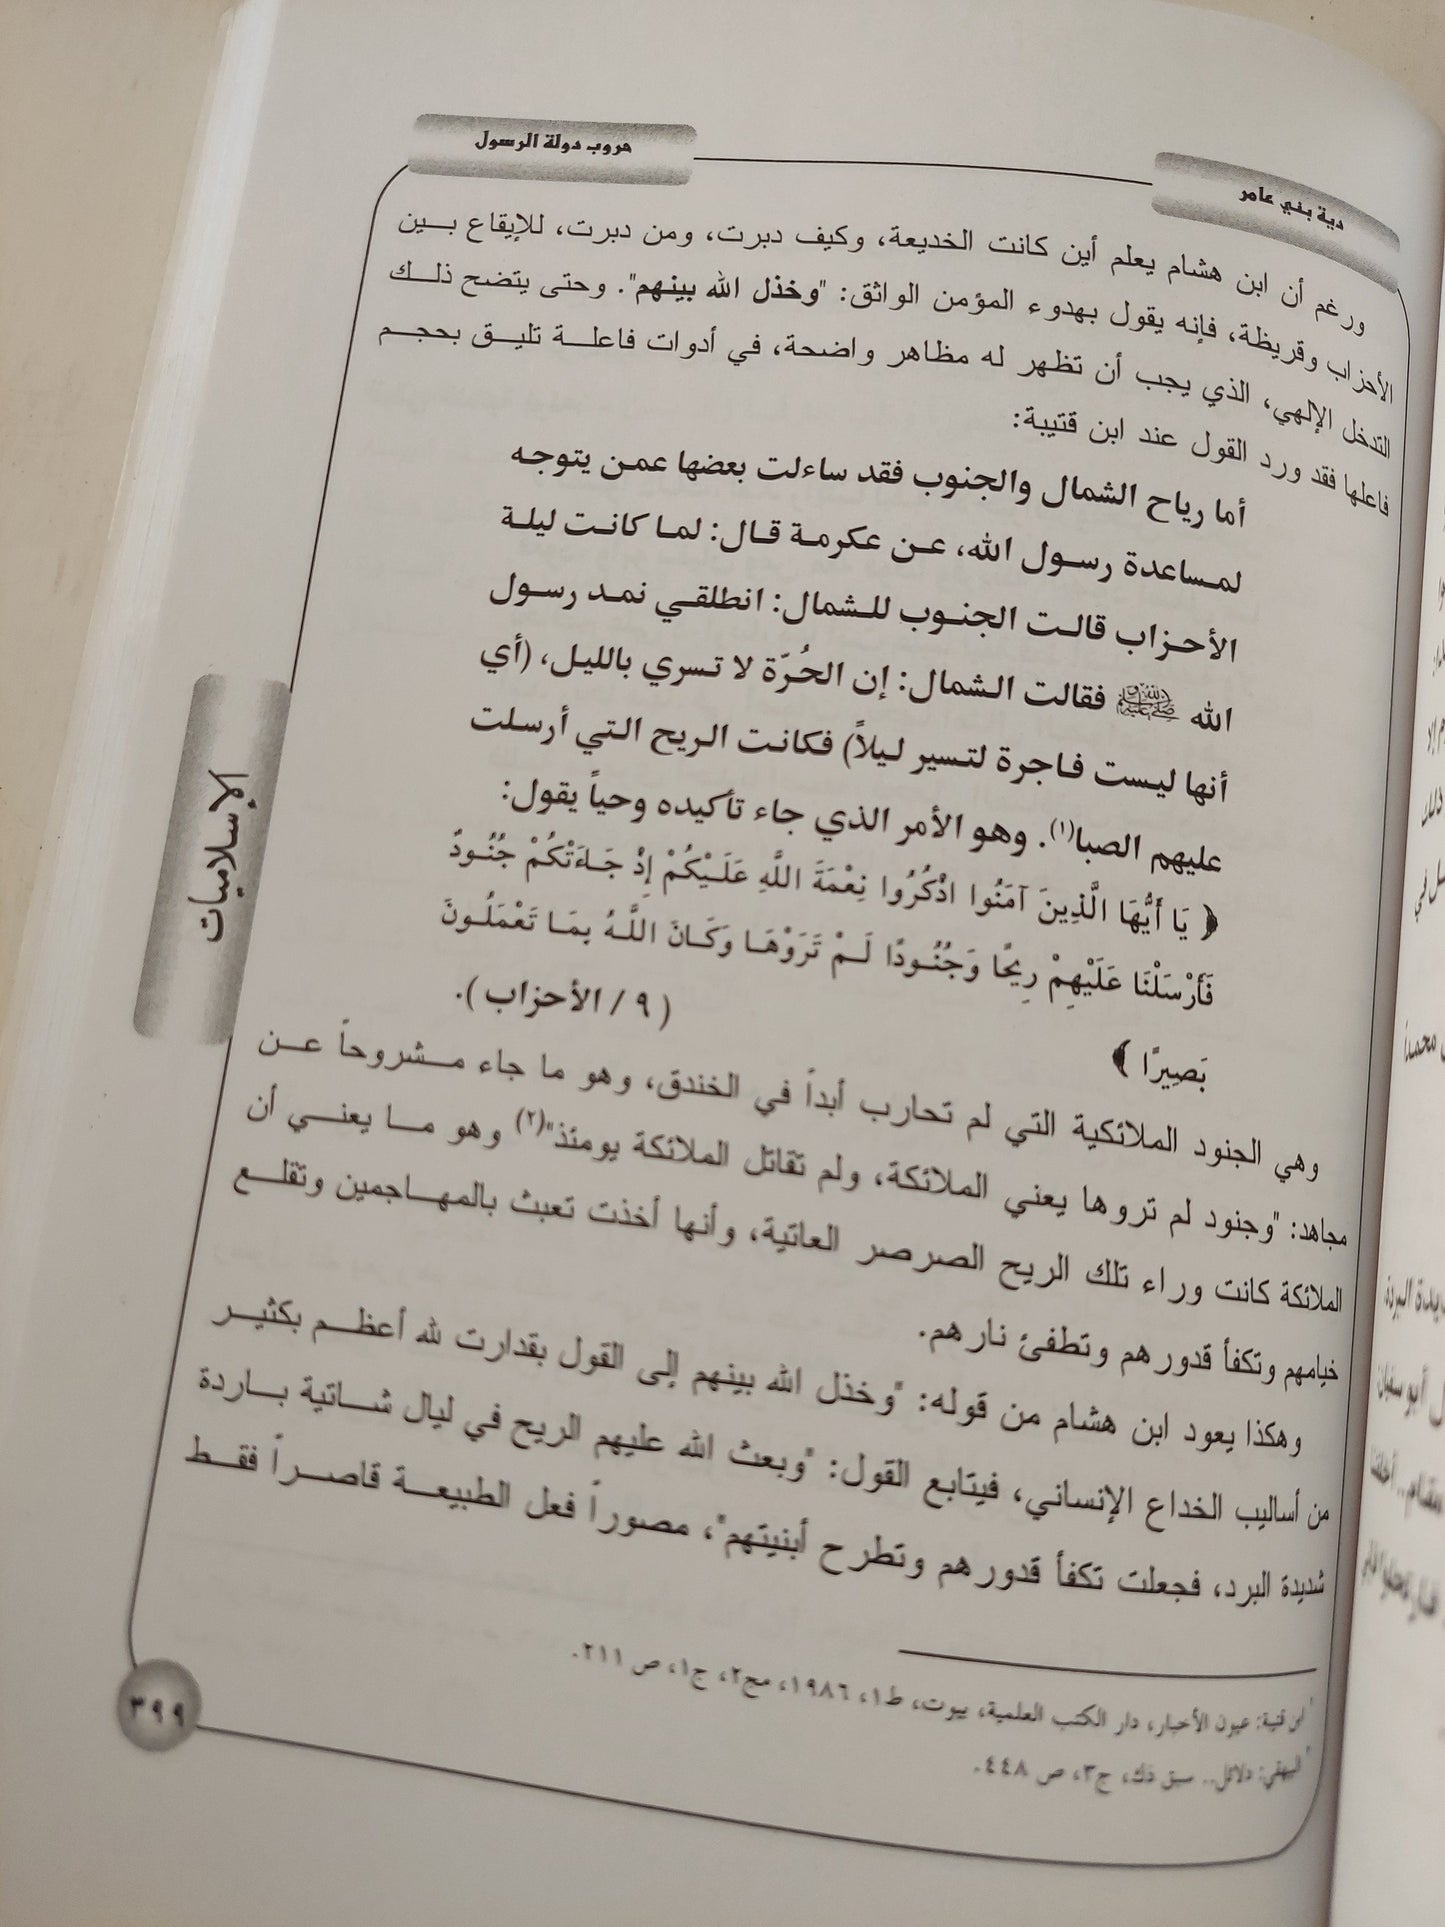 دية بني عامر
حروب دولة الرسول
ورغم أن ابن هشام يعلم أين كانت الخديعة، وكيف دبرت، ومن دبرت، للإيقاع بين
الأحزاب وقريظة، فإنه يقول بهدوء المؤمن الواثق: "وخذل الله بينهم". وحتى يتضح ذلك
التدخل الإلهي، الذي يجب أن تظهر له مظاهر واضحة، في أدوات فاعلة تليق بحجم
فاعلها فقد ورد القول عند ابن قتيبة:
أما رياح الشمال والجنوب فقد ساءلت بعضها عمن يتوجه
لمساعدة رسول الله، عن عكرمة قال: لما كانت ليلة
الأحزاب قالت الجنوب للشمال: انطلقي نمد رسول
الله ﷺ فقالت الشمال: إن الحُرّة لا تسري بالليل، (أي
أنها ليست فاجرة لتسير ليلاً) فكانت الريح التي أرسلت
عليهم الصبا(١). وهو الأمر الذي جاء تأكيده وحياً يقول:
﴿ يَا أَيُّهَا الَّذِينَ آمَنُوا اذْكُرُوا نِعْمَةَ اللَّهِ عَلَيْكُمْ إِذْ جَاءَتْكُمْ جُنُودٌ
فَأَرْسَلْنَا عَلَيْهِمْ رِيحًا وَجُنُودًا لَمْ تَرَوْهَا وَكَانَ اللَّهُ بِمَا تَعْمَلُونَ
بَصِيرًا ﴾ ( ٩ / الأحزاب ).
وهي الجنود الملائكية التي لم تحارب أبداً في الخندق، وهو ما جاء مشروحاً عن
مجاهد: "وجنود لم تروها يعني الملائكة، ولم تقاتل الملائكة يومئذ"(٢) وهو ما يعني أن
الملائكة كانت وراء تلك الريح الصرصر العاتية، وأنها أخذت تعبث بالمهاجمين وتقلع
خيامهم وتكفأ قدورهم وتطفئ نارهم.
وهكذا يعود ابن هشام من قوله: "وخذل الله بينهم إلى القول بقدارت لله أعظم بكثير
من أساليب الخداع الإنساني، فيتابع القول: "وبعث الله عليهم الريح في ليال شاتية باردة
شديدة البرد، فجعلت تكفأ قدورهم وتطرح أبنيتهم"، مصوراً فعل الطبيعة قاصراً فقط
١ ابن قتيبة: عيون الأخبار، دار الكتب العلمية، بيوت، ط١، ١٩٨٦، مج٢، ج١، ص ٢١١.
٢ البيهقي: دلائل.. سبق ذك، ج٣، ص ٤٤٨.
٣٩٩
الإسلاميات